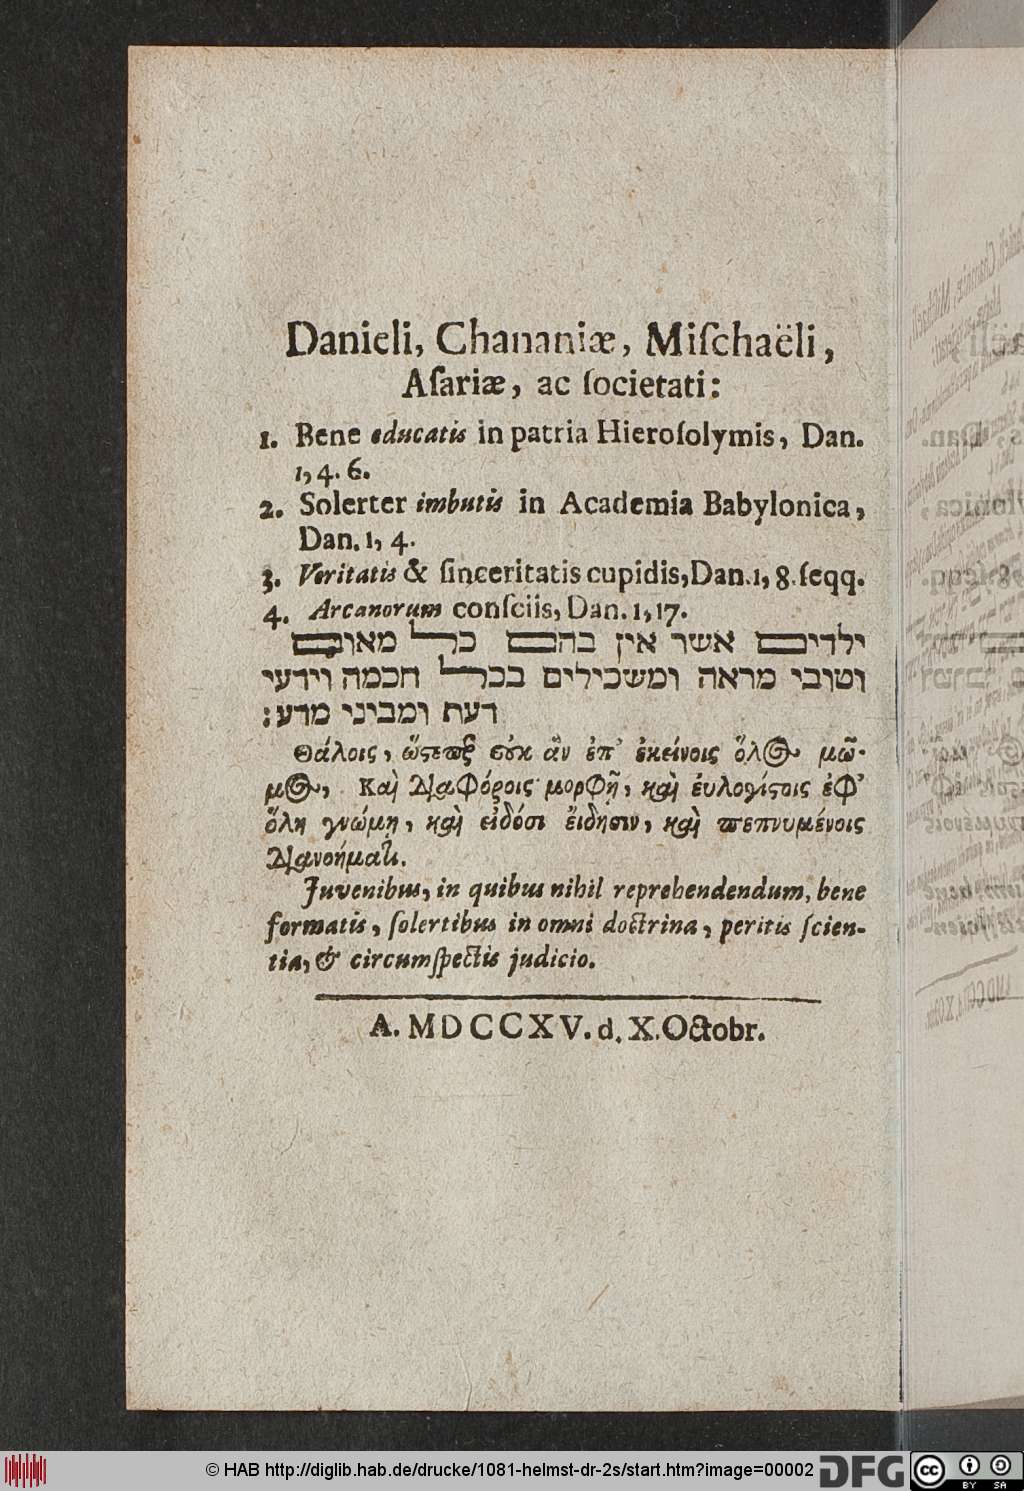 Danieli, Chananiæ, Miſchaëli,
Aſariæ, ac ſocietati:
1. Bene educatis in patria Hieroſolymis, Dan.
1, 4. 6.
2. Solerter imbutis in Academia Babylonica,
Dan. 1, 4.
3. Veritatis & ſinceritatis cupidis, Dan. 1, 8. ſeqq.
4. Arcanorum conſciis, Dan. 1, 17.
ילדים אשר אין בהם כל מאום
וטובי מראה ומשכילים בכל חכמה וידעי
דעת ומביני מדע:
Θάλοις, ὥςπερ οὐκ ἂν ἐπ' ἐκείνοις ὅλος μῶ-
μος, Καὶ Διαφόροις μορφῇ, καὶ ἐυλογίςοις ἐφ'
ὅλη γνώμη, καὶ εἰδόσι ἔιδησιν, καὶ πεπνυμένοις
Διανοήματι.
Juvenibus, in quibus nihil reprehendendum, bene
formatis, ſolertibus in omni doctrina, peritis ſcien-
tia, & circumſpectis judicio.
A. MDCCXV. d. X. Octobr.
© HAB http://diglib.hab.de/drucke/1081-helmst-dr-2s/start.htm?image=00002
DFG
cc BY SA